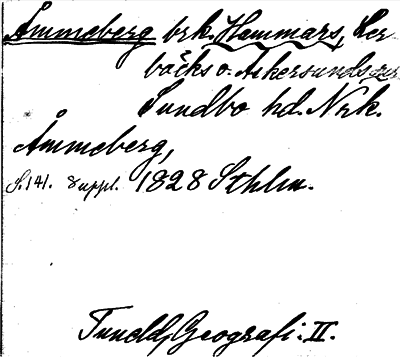 Åmmeberg brk. Hammars, Ler
bäcks o. Askersunds snr
Sundbo hd. Nrk.
Åmmeberg,
S. 141. Suppl. 1828 Sthlm.
Tuneld, Geografi. II.